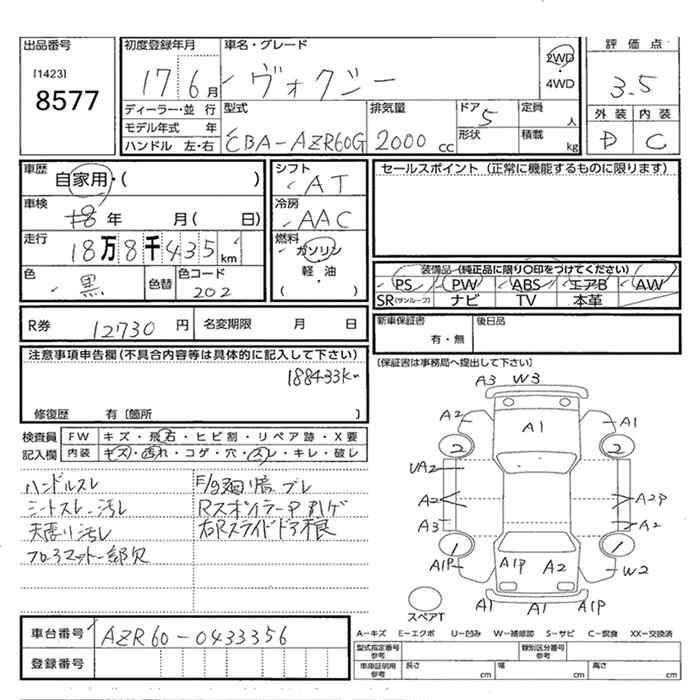 出品番号
[1423]
8577
初度登録年月
17 6月
車名・グレード
ヴォクシー
2WD
・
4WD
評価点
3.5
外装 内装
D C
ディーラー・並行
モデル年式 年
ハンドル 左・右
型式
CBA-AZR60G
排気量
2000 cc
ドア 5
形状
定員 人
積載 kg
車歴
自家用・( )
車検
18年 月( 日)
走行
18万8千435km
色
黒
色替
色コード
202
シフト
AT
冷房
AAC
燃料
ガソリン
軽・油
( )
セールスポイント(正常に機能するものに限ります)
装備品(純正品に限り○印をつけてください)
PS PW ABS エアB AW
SR(サンルーフ) ナビ TV 本革
R券 12730円
名変期限 月 日
新車保証書
有・無
後日品
[保証書は事務局へ提出して下さい]
注意事項申告欄(不具合内容等は具体的に記入して下さい)
188433km
修復歴 有〔箇所 〕
検査員
記入欄
FW キズ・飛石・ヒビ割・リペア跡・X要
内装 キズ・汚れ・コゲ・穴・スレ・キレ・破レ
ハンドルスレ
シートスレ、汚レ
天張り汚レ
フロアマット一部欠
Rスポイラー
右Rスライドドア
A3 W3
A2 A1 A1
2 2
UA2
A2 A2P
A3 A2
1 1
A1P A1P A2 W2
スペアT
A1 A1 A1P
車台番号 AZR60-0433356
登録番号
A-キズ E-エクボ U-凹み W-補修跡 S-サビ C-腐食 XX-交換済
型式指定番号
参考
類別区分番号
参考
車庫証明用
参考
長さ cm 幅 cm 高さ cm